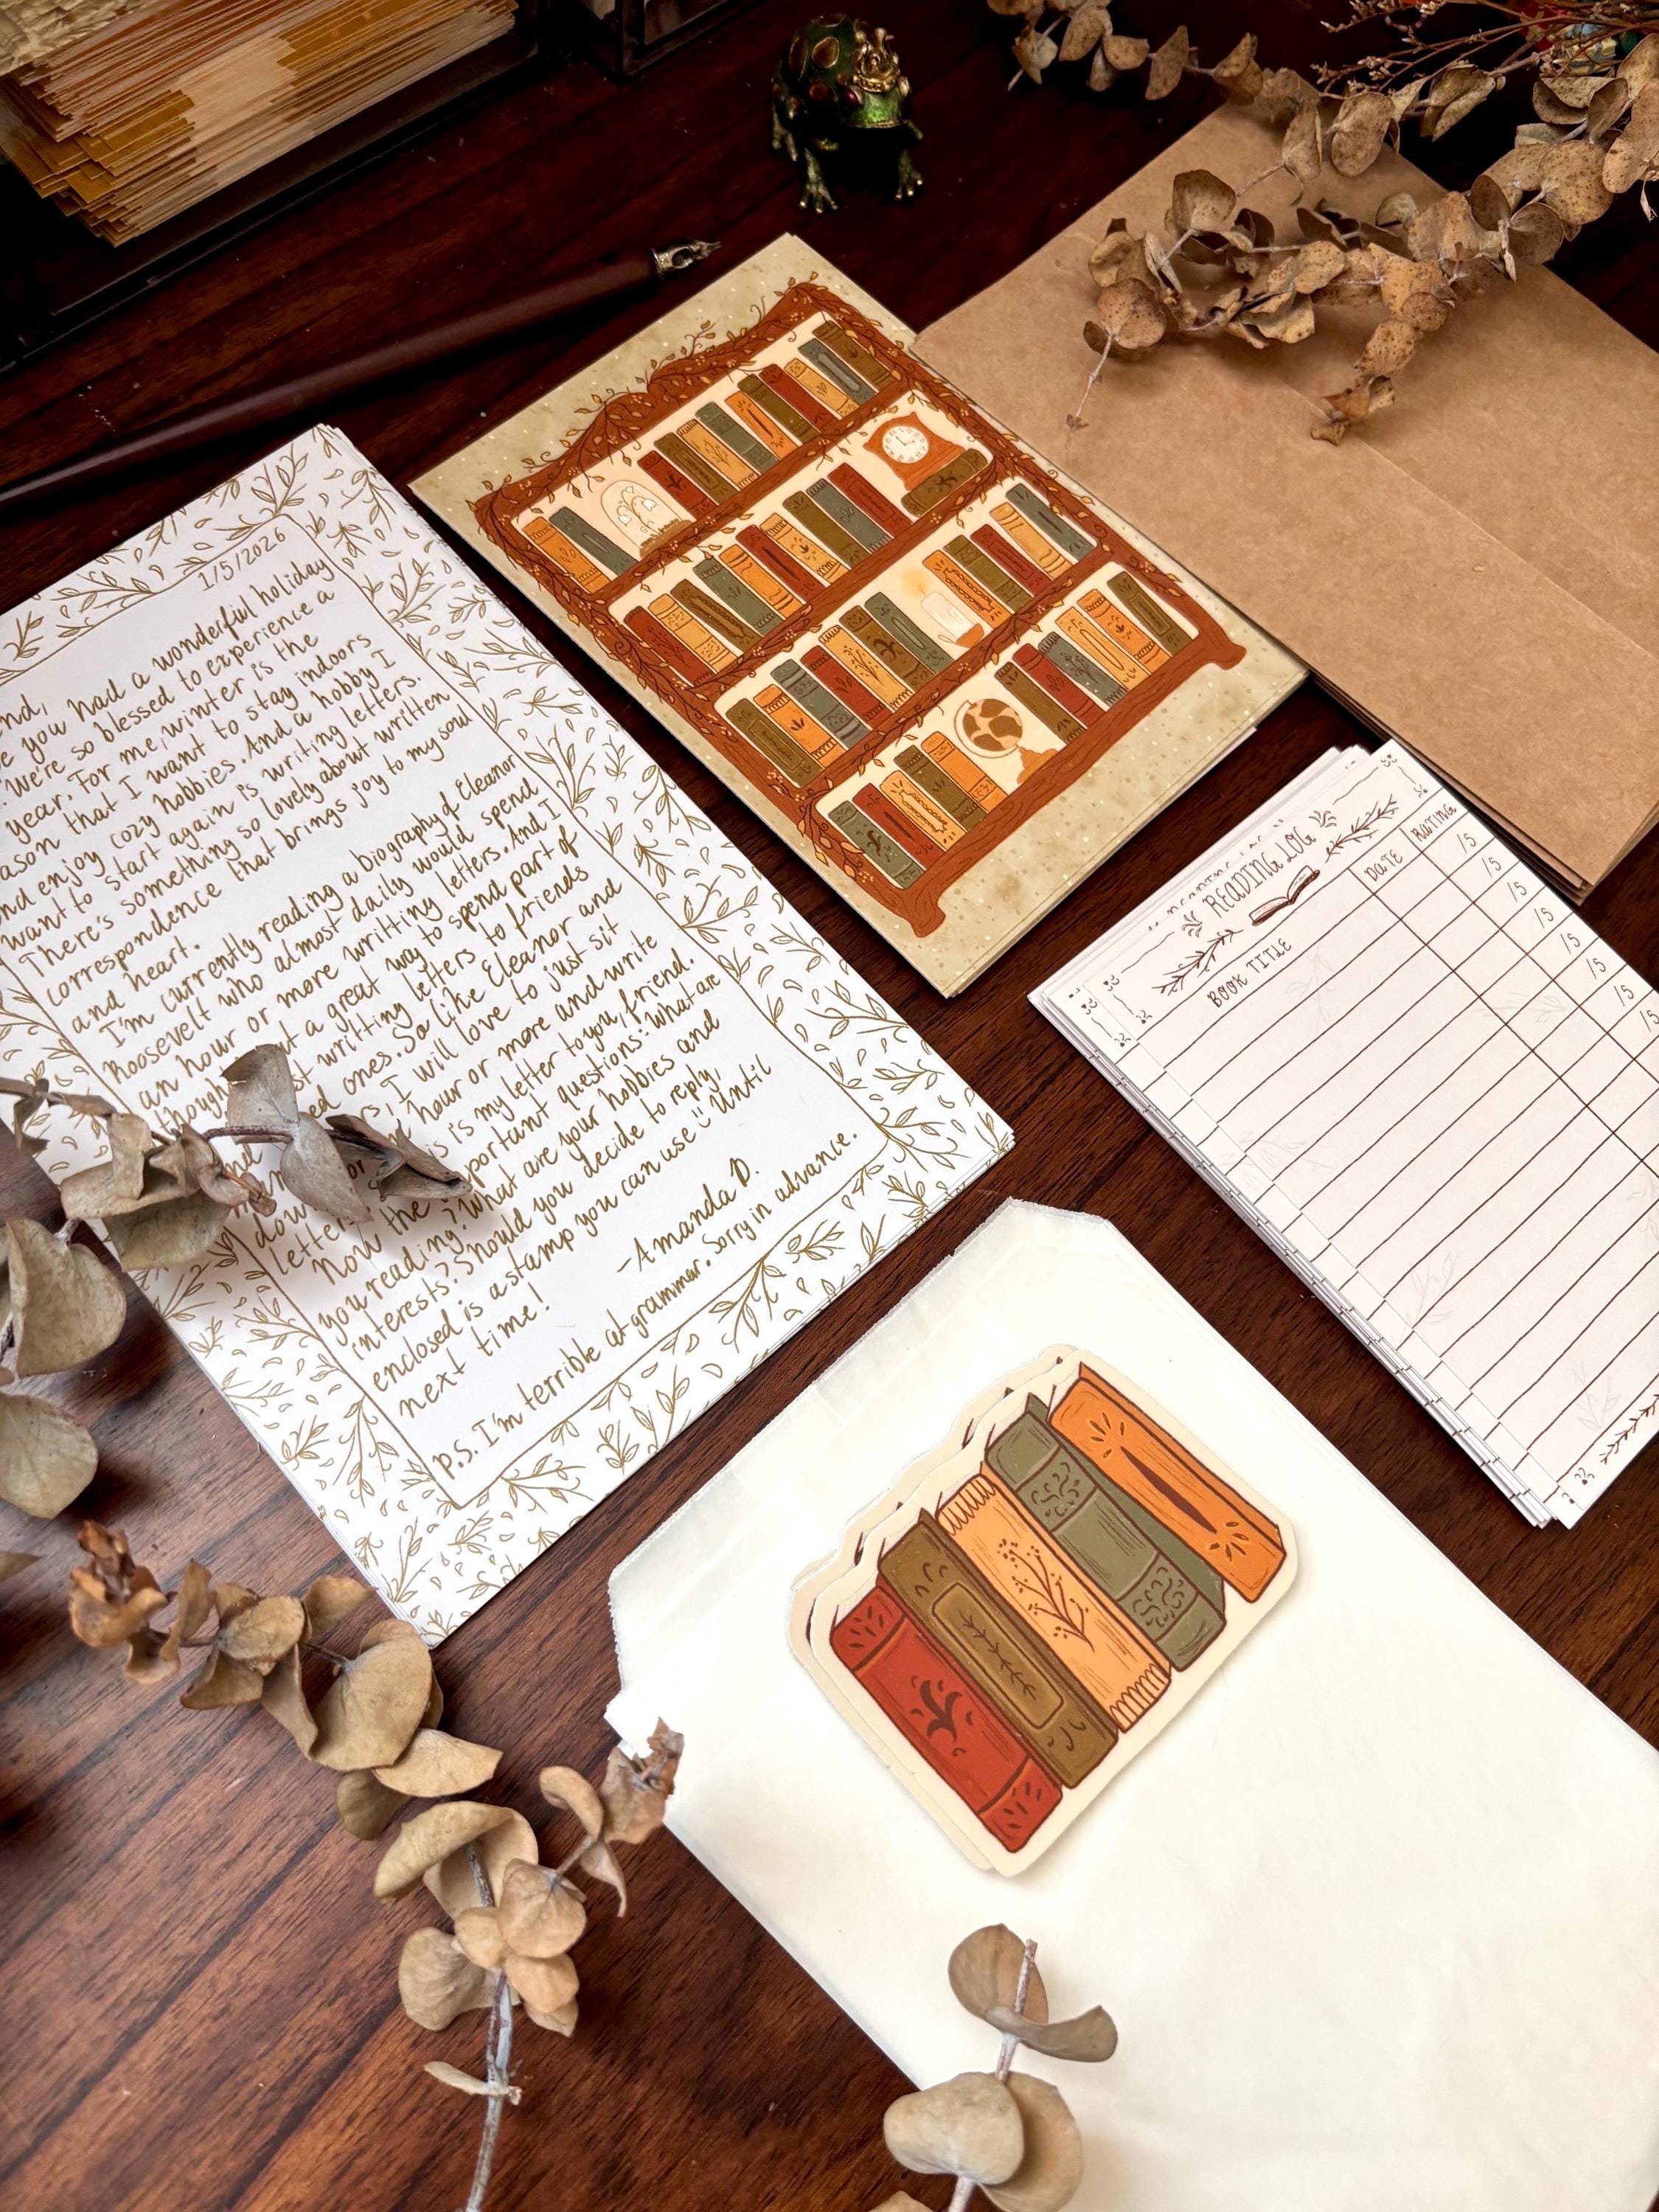 1/5/2026
you had a wonderful holiday
We're so blessed to experience a
year. For me, winter is the
that I want to stay indoors
and enjoy cozy hobbies. And a hobby I
want to start again is writing letters.
There's something so lovely about written
correspondence that brings joy to my soul
and heart.
I'm currently reading a biography of Eleanor
Roosevelt who almost daily would spend
an hour or more writting letters. And I
a great way to spend part of
writting letters to friends
ones. So like Eleanor and
I will love to just sit
hour or more and write
is my letter to you, friend.
Now the important questions: What are
you reading? What are your hobbies and
interests? Should you decide to reply,
enclosed is a stamp you can use :) Until
next time!
-Amanda D.
P.S. I'm terrible at grammar. Sorry in advance.
READING LOG
BOOK TITLE DATE RATING
/5
/5
/5
/5
/5
/5
/5